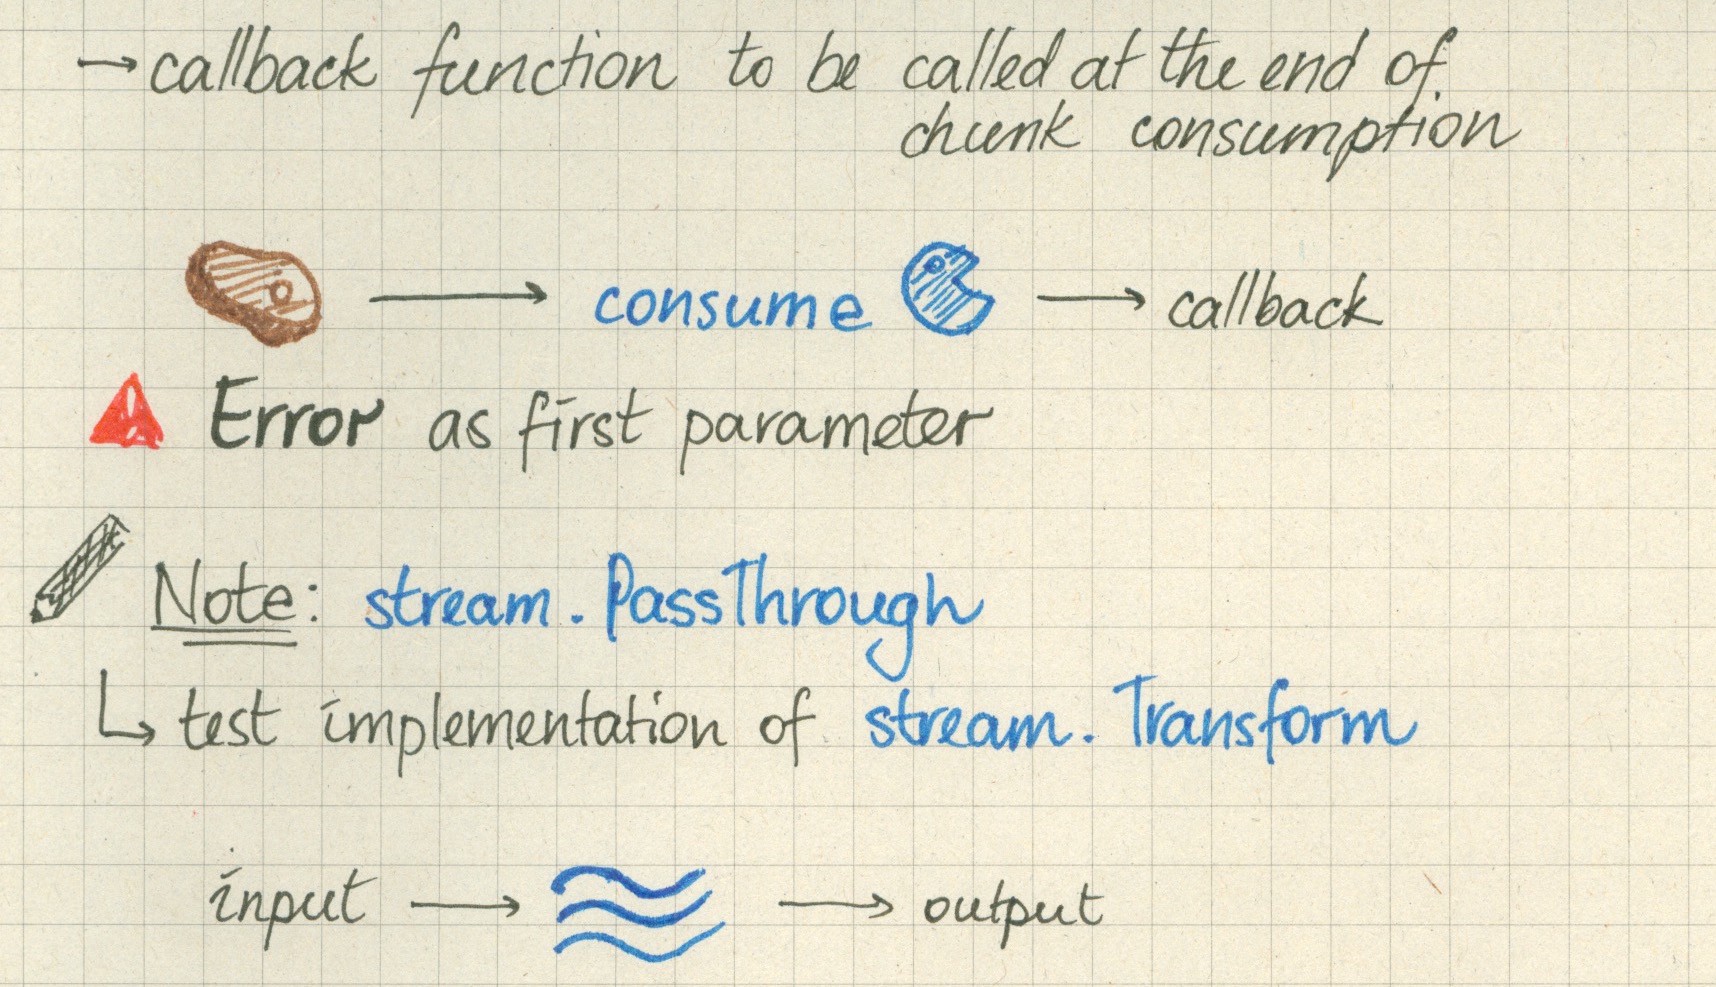 → callback function to be called at the end of
chunk consumption
→ consume → callback
Error as first parameter
Note: stream.PassThrough
↳ test implementation of stream.Transform
input → → output